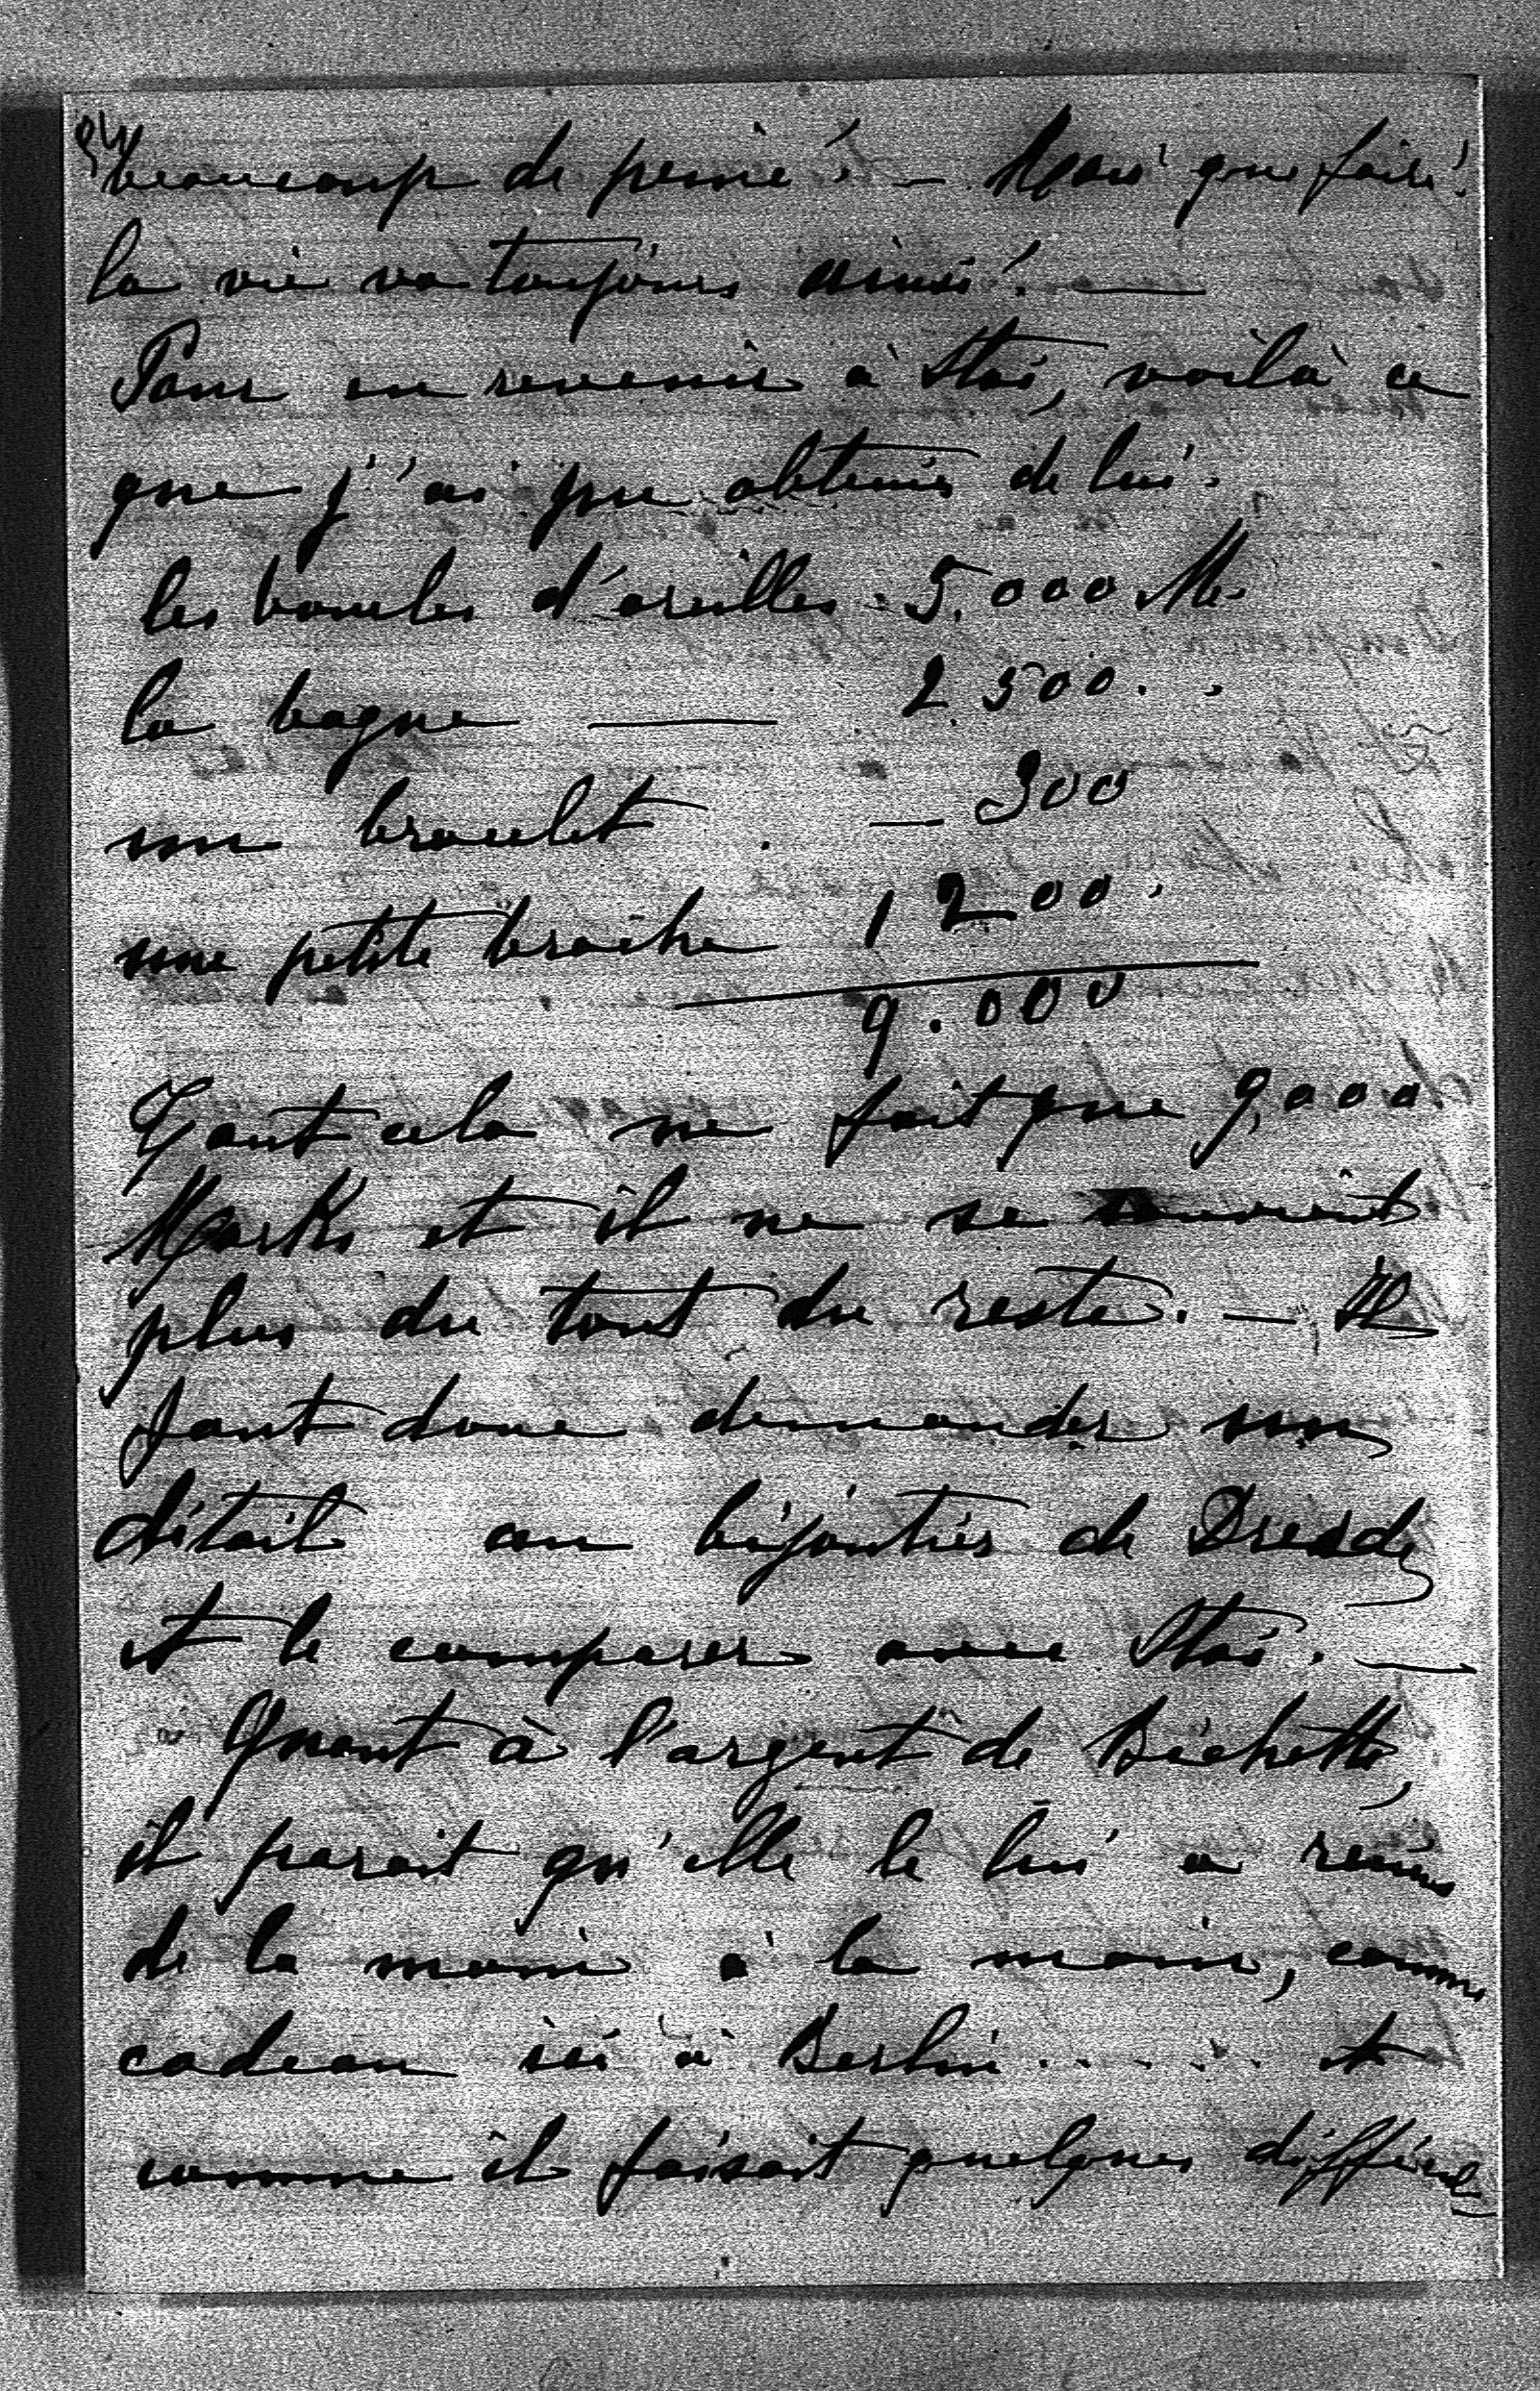 beaucoup de peine! — Mais que faire!
la vie va toujours ainsi! —
Pour en revenir à Stas, voilà ce
que j'ai pu obtenir de lui.
les boucles d'oreilles. 5.000 M.
la bague — 2.500. .
un bracelet . — 300
une petite broche 1200.
9.000
Tout cela ne fait que 9,000.
Marks et il ne se souvient
plus du tout du reste. — Il
faut donc demander un
détail au bijoutier de Dresde
et le comparer avec Stas. —
Quant à l'argent de Bichette,
il parait qu'elle le lui a remis
de la main à la main, comme
cadeau ici à Berlin . . . . . et
comme il faisait quelques difficul